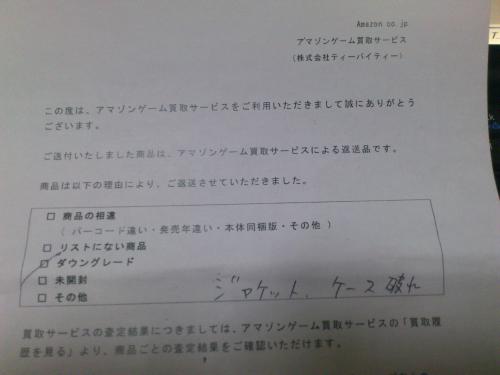 Amazon.co.jp
アマゾンゲーム買取サービス
（株式会社ティーバイティー）
この度は、アマゾンゲーム買取サービスをご利用いただきまして誠にありがとう
ございます。
ご送付いたしました商品は、アマゾンゲーム買取サービスによる返送品です。
商品は以下の理由により、ご返送させていただきました。
□ 商品の相違
（ バーコード違い・発売年違い・本体同梱版・その他 ）
□ リストにない商品
□ ダウングレード
□ 未開封
□ その他
ジャケット、ケース破れ
買取サービスの査定結果につきましては、アマゾンゲーム買取サービスの「買取履
歴を見る」より、商品ごとの査定結果をご確認いただけます。